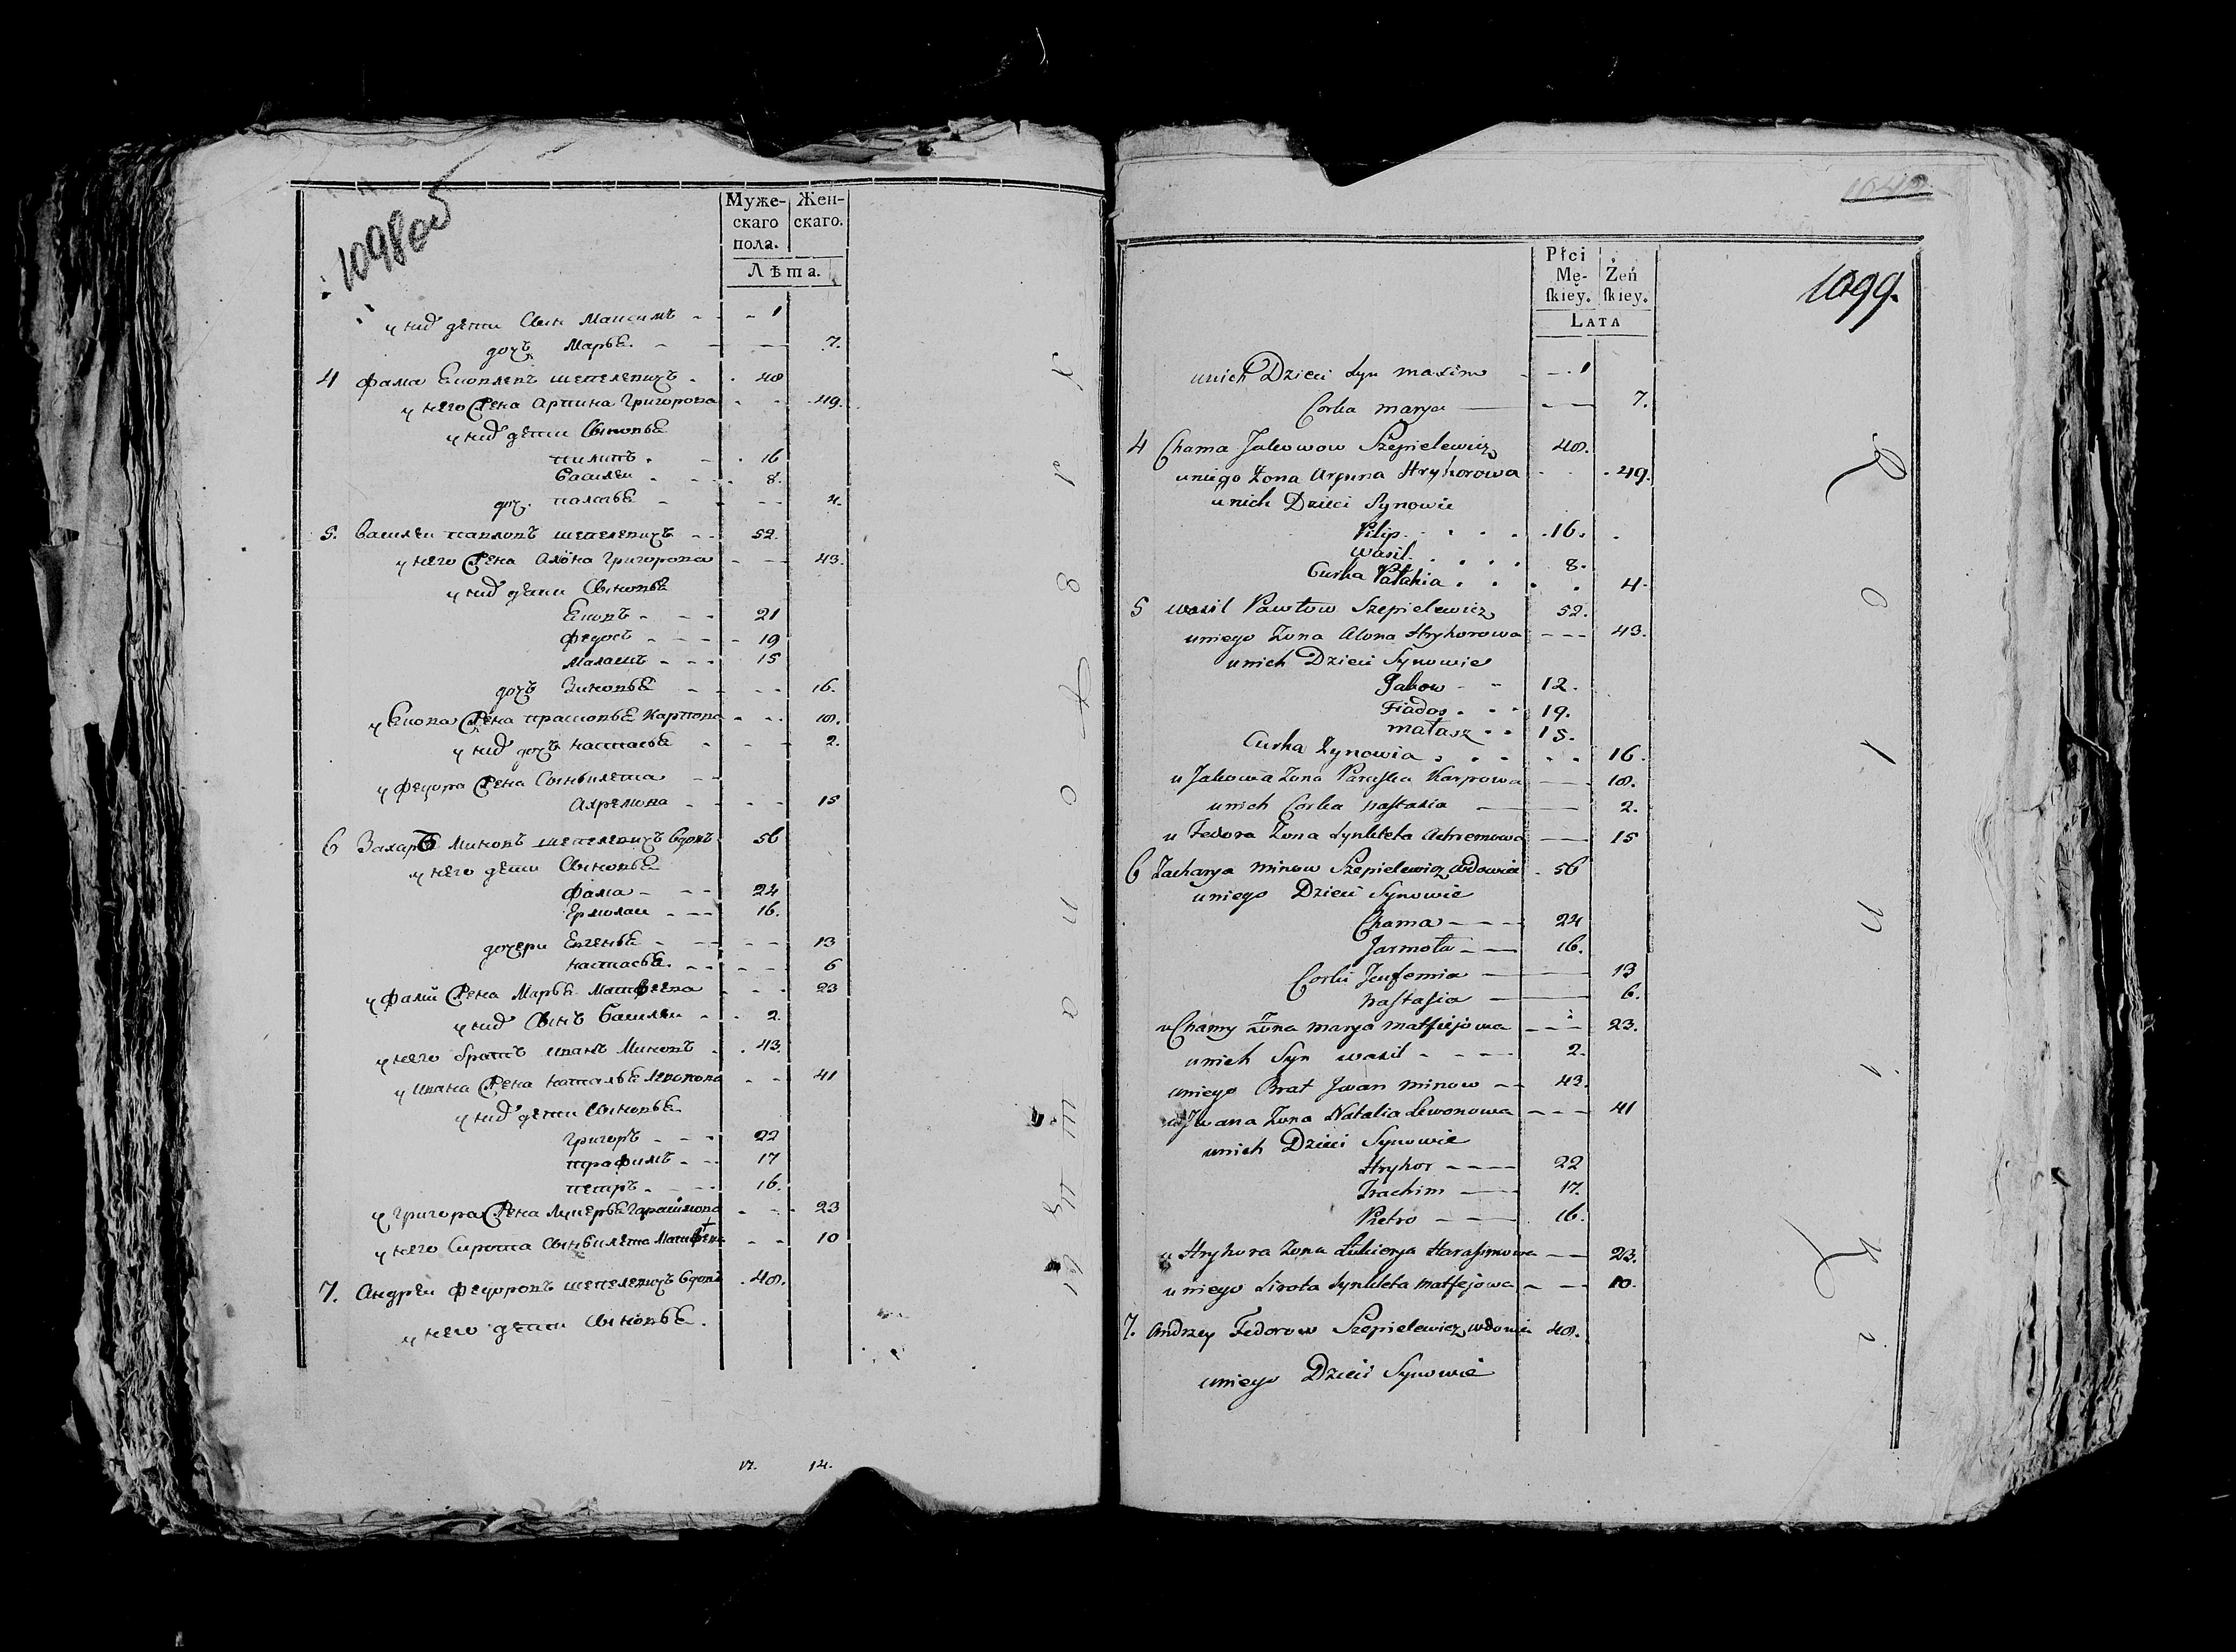 1098об
Муже-
скаго
пола.
Жен-
скаго.
Лѣта.
у них дети Сын Максимъ 1
дочъ Марья 7.
4 Фама Ековлевъ шепелевичъ 48
у него жена Арпина Григорова 49.
у них дети Сыновья
пилипъ 16
Василеи 8.
доч. палагья 4.
5. Василеи павловъ шепелевичъ 52.
у него жена Алёна Григорова 43.
у них дети Сыновья
Ековъ 21
Федосъ 19
Малашъ 15
дочъ Зиновья 16.
у Екова жена прасковья Карпова 18.
у них дочъ настасья 2.
у Федора жена Сынклета
Ахремова 15
6 Захаръ Миновъ шепелевичъ вдовъ 56
у него дети Сыновья
Фама 24
Ермолаи 16.
дочери Евгенья 13
настасья 6
у Фамы жена Марья Матфеева 23
у них Сынъ Василеи 2.
у него братъ иванъ Миновъ 43.
у ивана жена наталья левонова 41
у них дети Сыновья
григоръ 22
трафимъ 17
петръ 16.
у григора жена лукерья Гарасимова 23
у него Сирота Сынклета Матфеева 10
7. Андреи Федоровъ шепелевичъ вдовъ 48.
у него дети Сыновья.
17. 14.
1099.
Płci
Mę-
ſkieÿ.
Żeń
ſkiey.
LATA
unich Dzieci Syn maxim 1
Corka marya 7.
4 Chama Jakowow Szepielewicz 48.
uniego Zona Arpina Hryhorowa 49.
unich Dzieci Synowie
Pilip 16.
Wasil 8.
Curka Patahia 4.
5 wasil Pawłow Szepielewicz 52.
uniego Zona Alona Hryhorowa 43.
unich Dzieci Synowie
Jakow 12.
Fiados 19.
małasz 15.
Curka Zynowia 16.
u Jakowa Zona Paraska Karpowa 18.
unich Corka nastasia 2.
u Fedora Zona Synkleta Achremowa 15
6 Zacharya minow Szepielewicz wdowiec 56
uniego Dzieci Synowie
Chama 24
Jarmoła 16.
Corki Jeufemia 13
nastasia 6.
u Chamy Zona marya matfiejowa 23.
unich Syn wasil 2.
uniego Brat Jwan minow 43.
u Jwana Zona Natalia Lewonowa 41
unich Dzieci Synowie
Hryhor 22
Trachim 17.
Pietro 16.
u Hryhora Zona Łukierya Harasimowa 23.
uniego Sirota Synkleta matfejowa 10.
7. Andrzey Fedorow Szepielewicz wdowiec 48.
uniego Dzieci Synowie